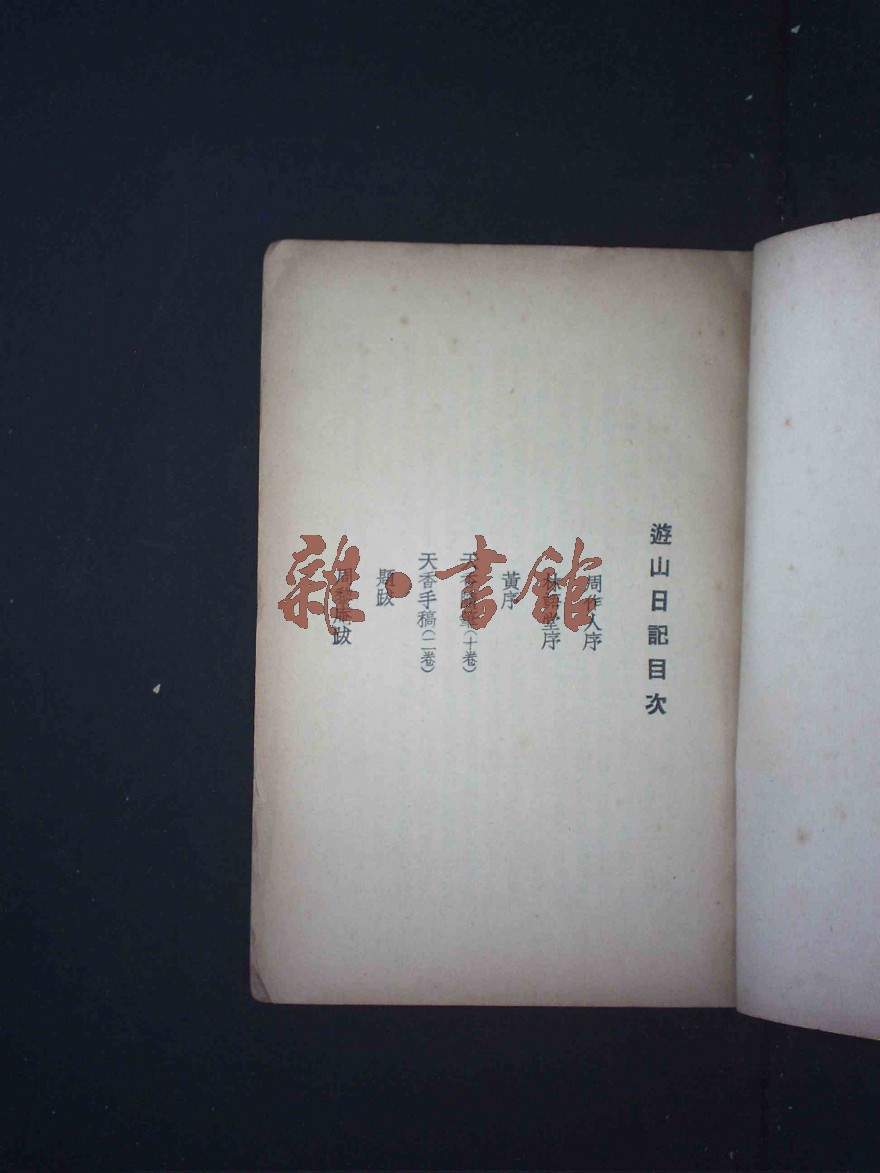 遊山日記目次
周作人序
林語堂序
黃序
天香隨筆(十卷)
天香手稿(二卷)
題跋
周黎庵跋
雜·書館